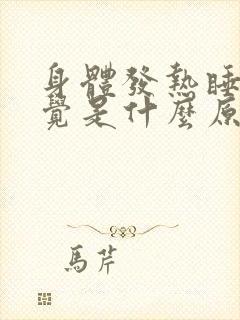 身體發熱睡
覺是什麼原
馬芹